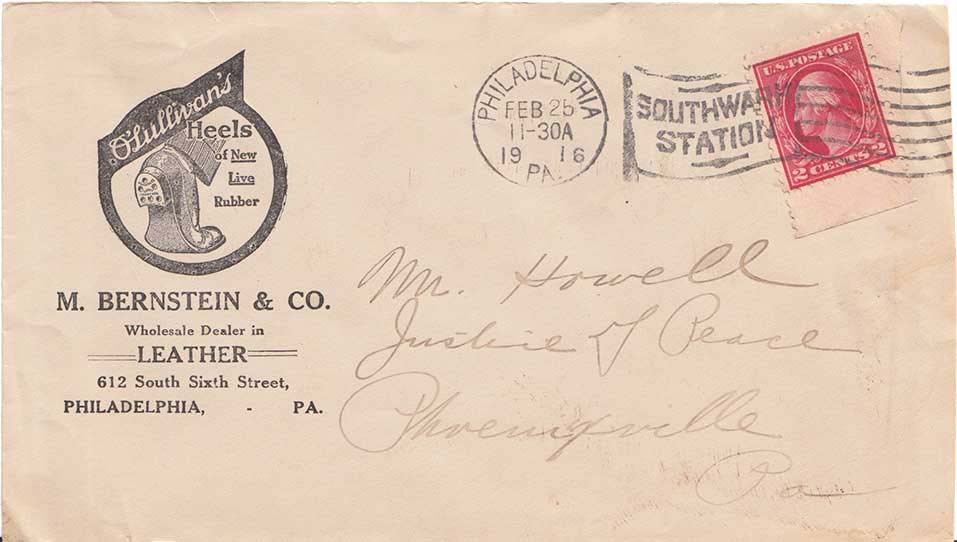 O'Sullivan's
Heels
of New
Live
Rubber
M. BERNSTEIN & CO.
Wholesale Dealer in
LEATHER
612 South Sixth Street,
PHILADELPHIA, - PA.
PHILADELPHIA
FEB 25
11-30A
19 16
PA.
SOUTHWARK
STATION
U.S. POSTAGE
2 CENTS 2
Mr. Howell
Justice of Peace
Phoenixville
Pa